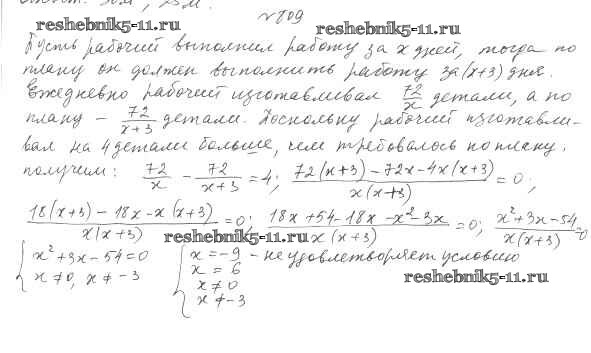 № 809
reshebnik5-11.ru
reshebnik5-11.ru
Пусть рабочий выполнил работу за x дней, тогда по
плану он должен выполнить работу за (x+3) дня.
Ежедневно рабочий изготавливал 72/x детали, а по
плану – 72/(x+3) детали. Поскольку рабочий изготавли-
вал на 4 детали больше, чем требовалось по плану,
получим: 72/x − 72/(x+3) = 4; (72(x+3) − 72x − 4x(x+3))/(x(x+3)) = 0;
(18(x+3) − 18x − x(x+3))/(x(x+3)) = 0; (18x + 54 − 18x − x² − 3x)/(x(x+3)) = 0; (x² + 3x − 54)/(x(x+3)) = 0
reshebnik5-11.ru
{ x² + 3x − 54 = 0
x ≠ 0, x ≠ −3
{ x = −9 – не удовлетворяет условию
x = 6
x ≠ 0
x ≠ −3
reshebnik5-11.ru